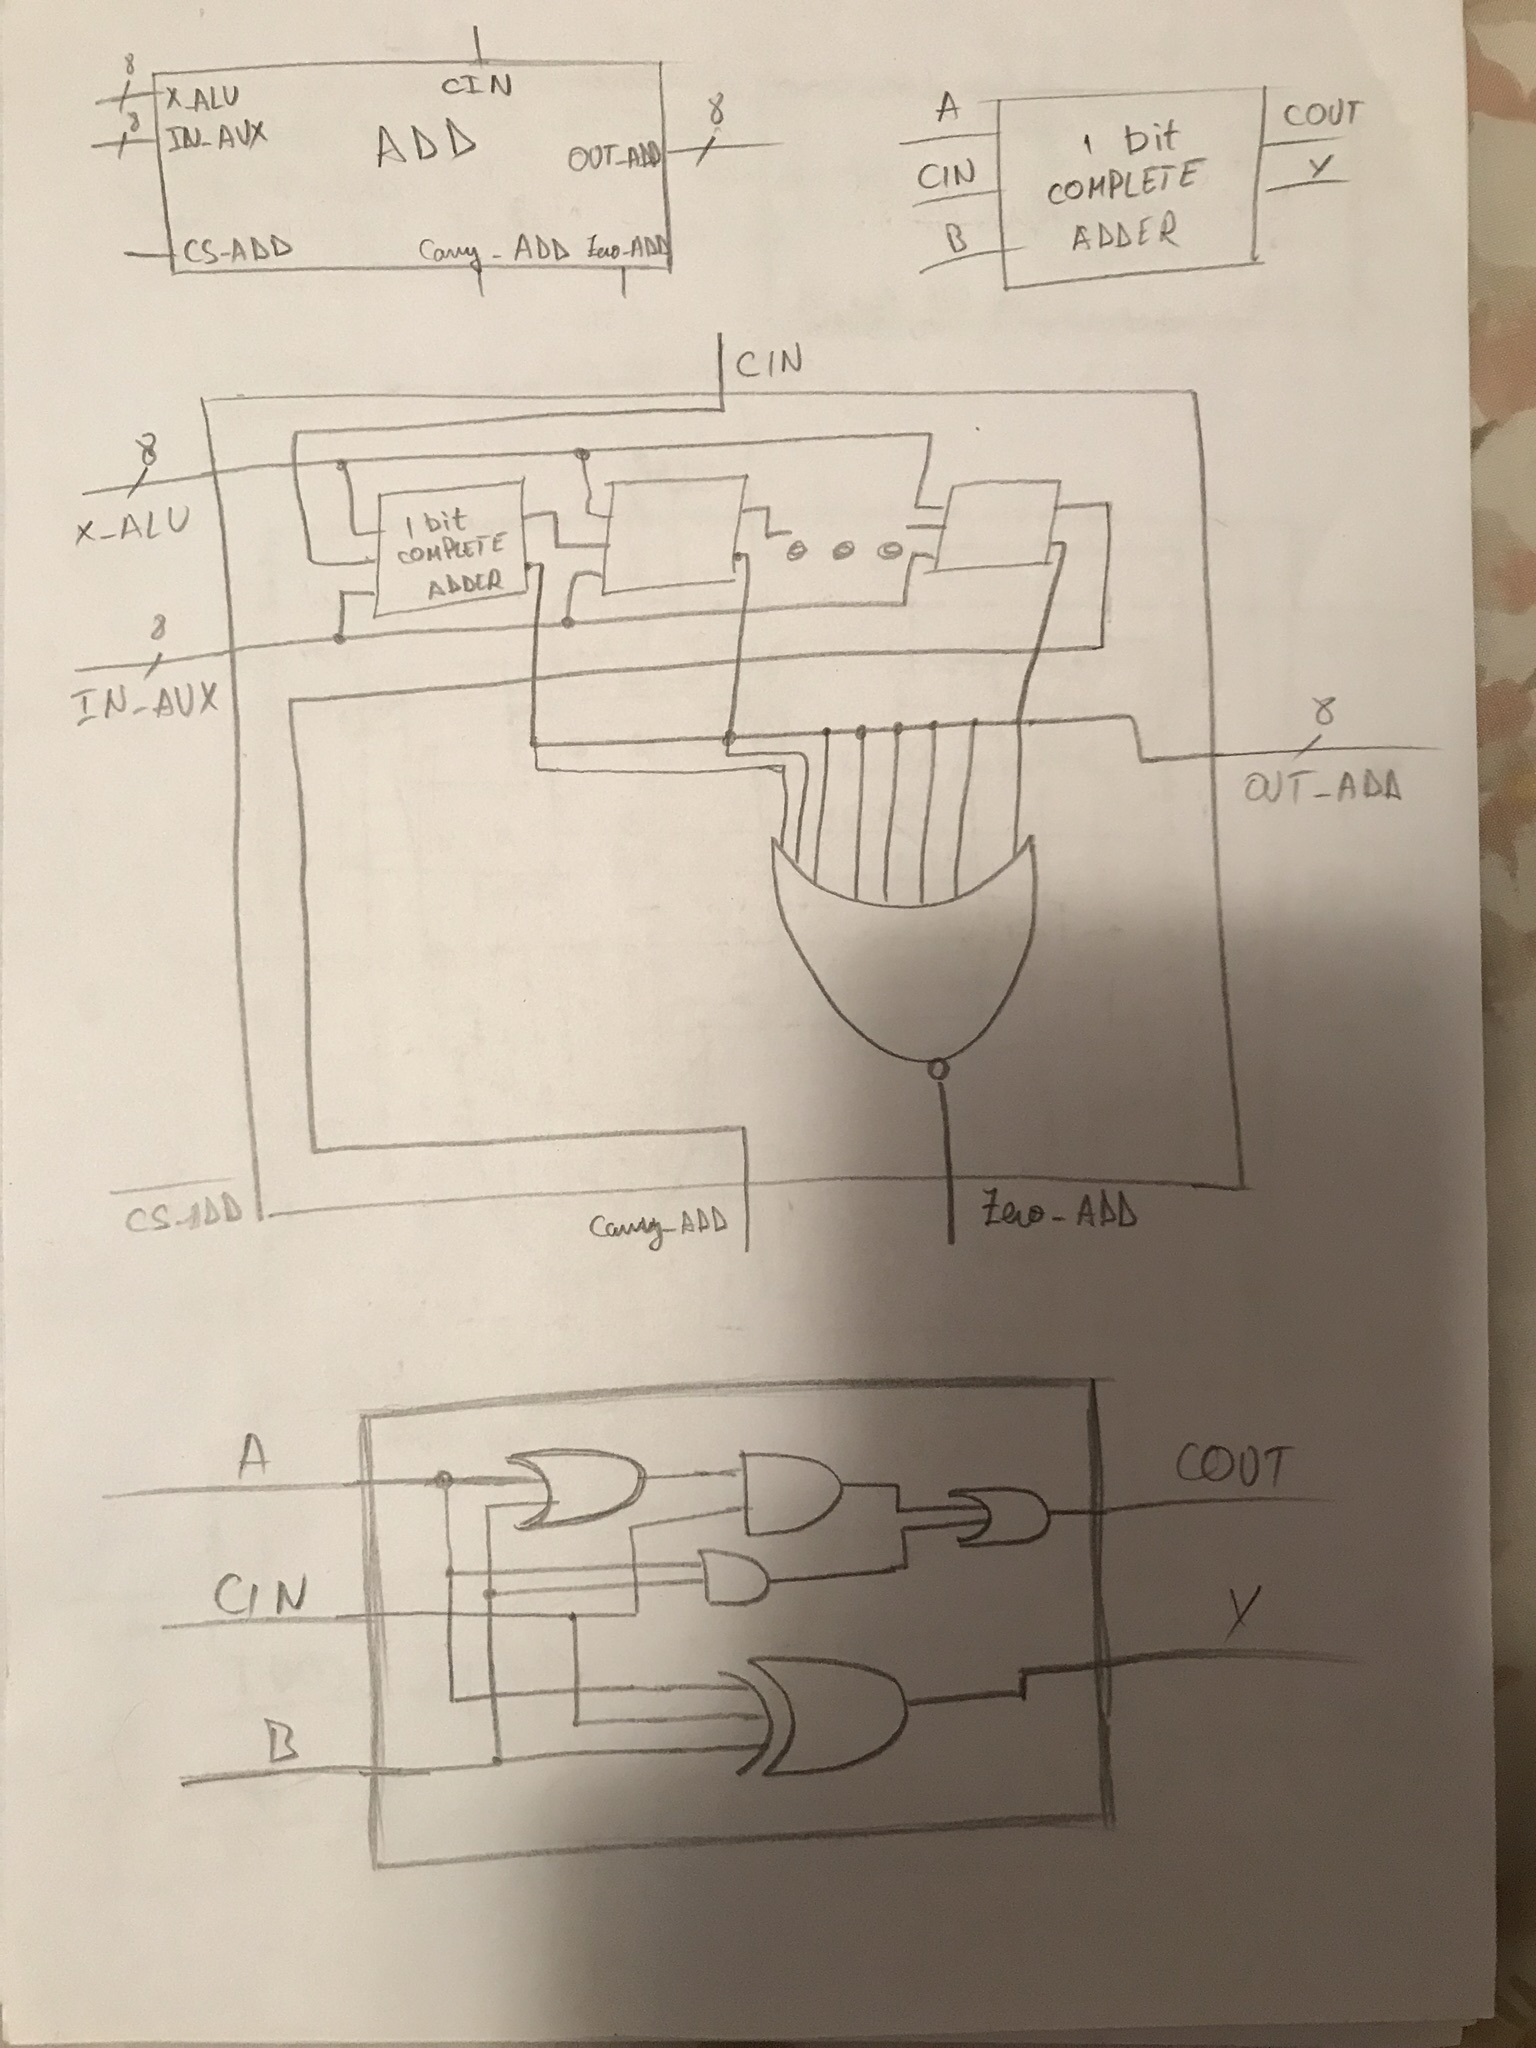 8
X_ALU
8
IN_AUX
CS-ADD
CIN
ADD
OUT_ADD
8
Carry_ADD
Zero_ADD
A
CIN
B
1 bit
COMPLETE
ADDER
COUT
Y
CIN
8
X_ALU
1 bit
COMPLETE
ADDER
8
IN_AUX
8
OUT_ADD
CS_ADD
Carry_ADD
Zero_ADD
A
CIN
B
COUT
Y